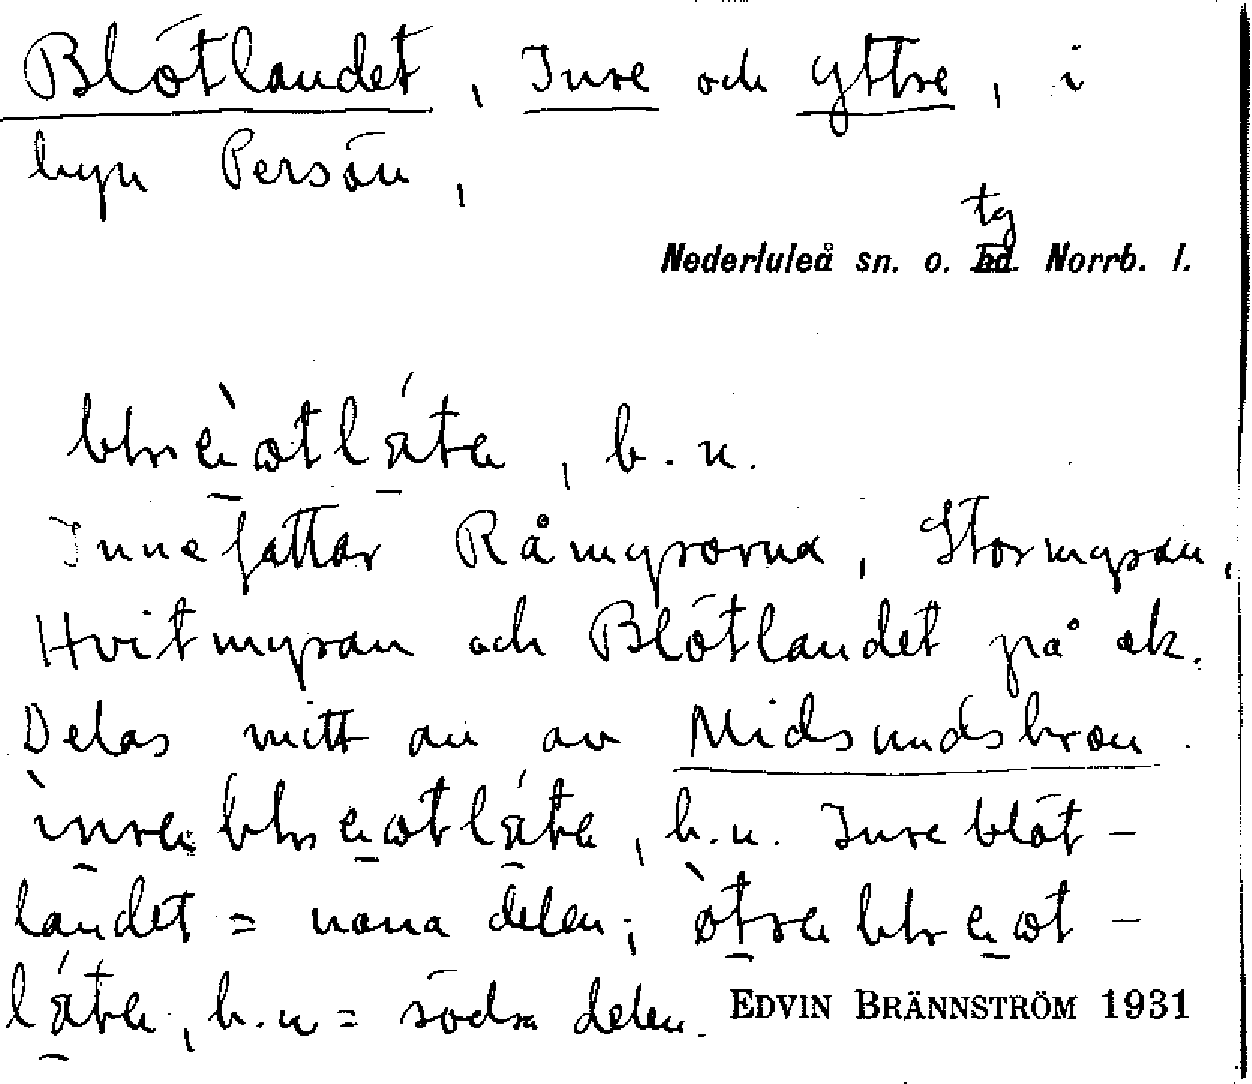 Blötlandet, Inre och Yttre, i
byn Persön,
tg
Nederluleå sn. o. hd. Norrb. l.
b.n.
Innefattar Råmyrorna, Stormyran,
Hvitmyran och Blötlandet på ek.
Delas mitt av av Midsundsbron.
b.n. Inre blöt-
landet = norra delen;
b.n = södra delen.
EDVIN BRÄNNSTRÖM 1931